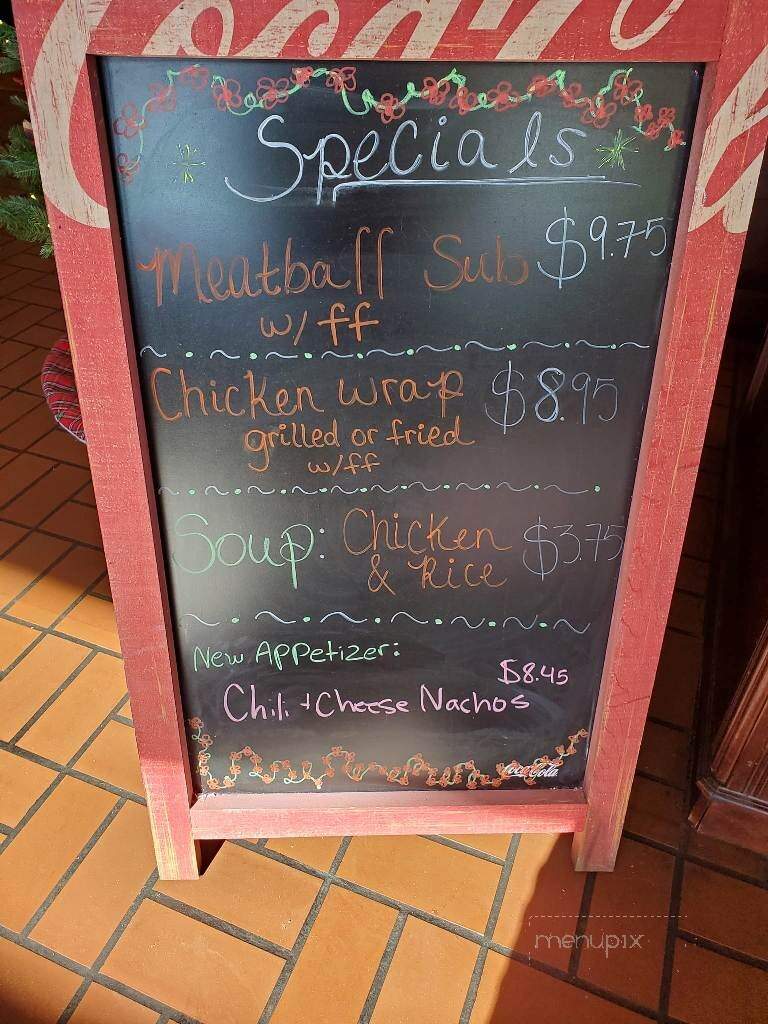 Coca
Specials
Meatball Sub $9.75
w/ ff
Chicken wrap $8.95
grilled or fried
w/ff
Soup: Chicken $3.75
& Rice
New Appetizer:
$8.45
Chili + Cheese Nachos
Coca-Cola
menupix